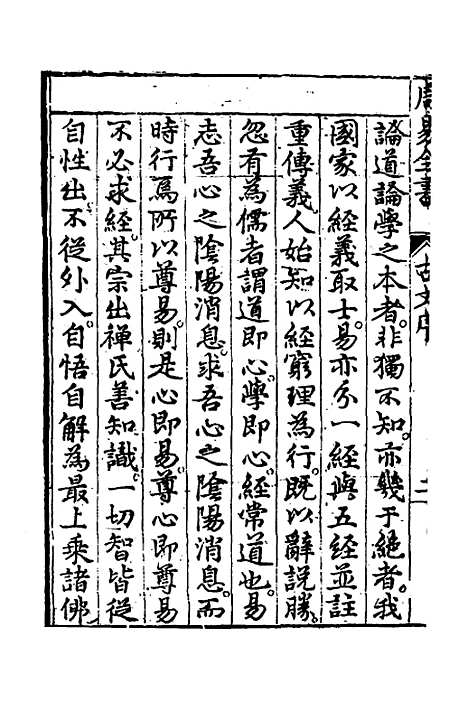 周易全書 古文序 二
論道論學之本者非獨不知亦幾于絕者我
國家以經義取士易亦分一經與五經並註
重傳義人始知以經窮理為行既以辭說勝
忽有為儒者謂道即心學即心經常道也易
志吾心之陰陽消息求吾心之陰陽消息而
時行焉所以尊易則是心即易尊心即尊易
不必求經其宗出禪氏善知識一切智皆從
自性出不從外入自悟自解為最上乘諸佛